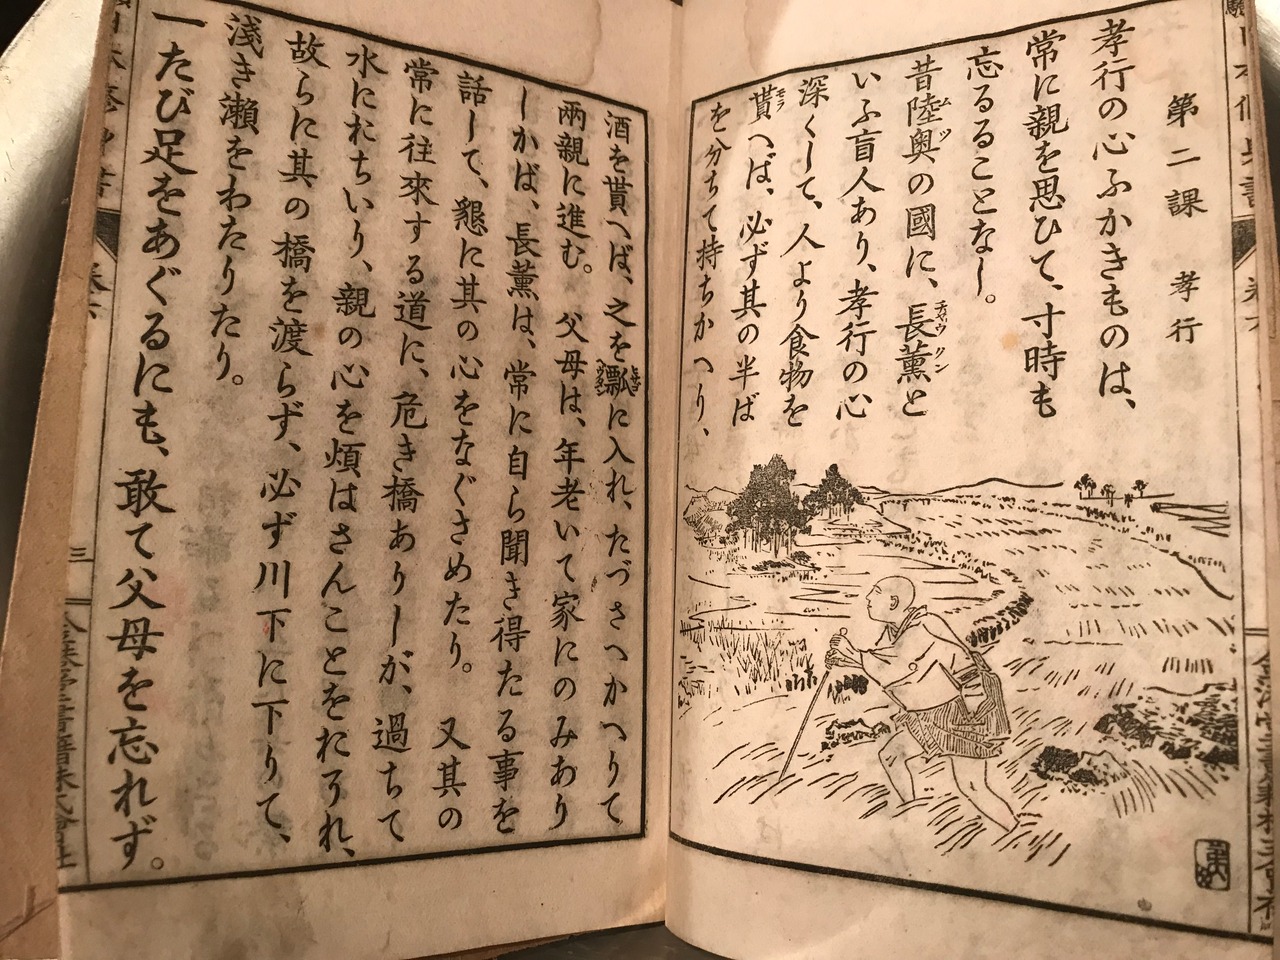 第二課 孝行
孝行の心ふかきものは、
常に親を思ひて、寸時も
忘るることなし。
昔陸奥の國に、長薫と
いふ盲人あり、孝行の心
深くして、人より食物を
貰へば、必ず其の半ば
を分ちて持ちかへり、
酒を貰へば、之を瓢に入れ、たづさへかへりて
兩親に進む。父母は、年老いて家にのみあり
しかば、長薫は、常に自ら聞き得たる事を
話して、懇に其の心をなぐさめたり。又其の
常に往來する道に、危き橋ありしが、過ちて
水におちいり、親の心を煩はさんことをおそれ、
故らに其の橋を渡らず、必ず川下に下りて、
淺き瀬をわたりたり。
一たび足をあぐるにも、敢て父母を忘れず。
三